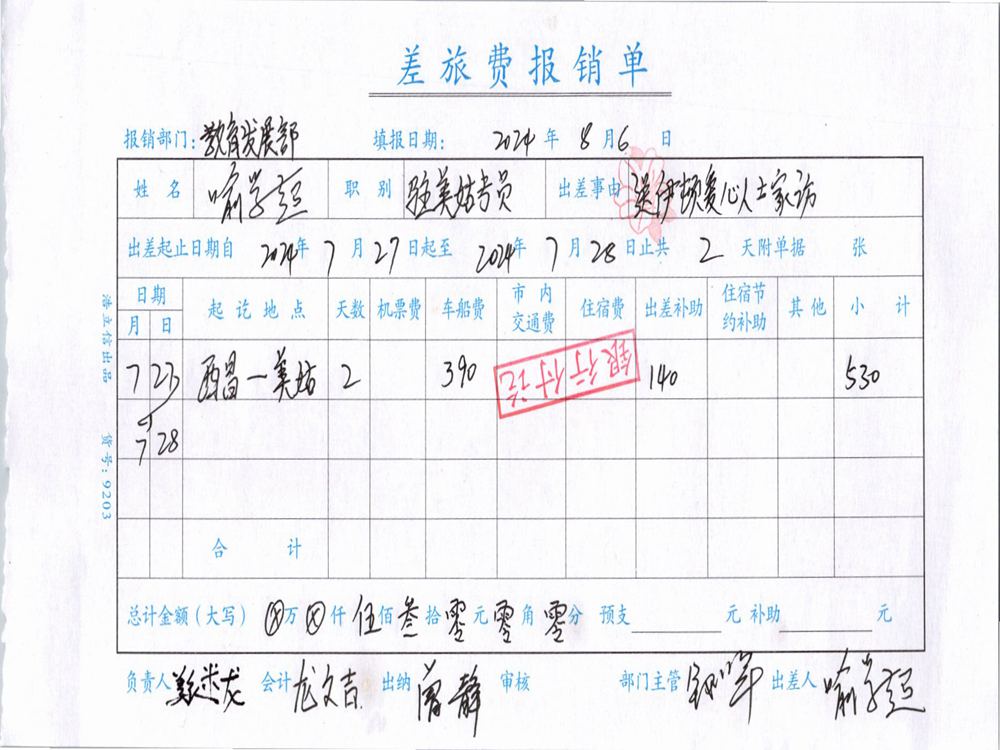 差旅费报销单
报销部门：教育发展部 填报日期： 2024 年 8 月 6 日
姓名 喻学超 职别 驻美姑专员 出差事由 送伊顿爱心人士家访
出差起止日期自 2024年 7 月 27 日起至 2024年 7 月 28 日止共 2 天附单据 张
日期 起讫地点 天数 机票费 车船费 市内交通费 住宿费 出差补助 住宿节约补助 其他 小计
月 日
7 23 西昌—美姑 2 390 140 530
银行付讫
7 28
合计
总计金额（大写） ⊗万 ⊗仟 伍佰 叁拾 零元 零角 零分 预支 元 补助 元
负责人 会计 龙文吉 出纳 曾静 审核 部门主管 出差人 喻学超
浩立信出品 货号：9203